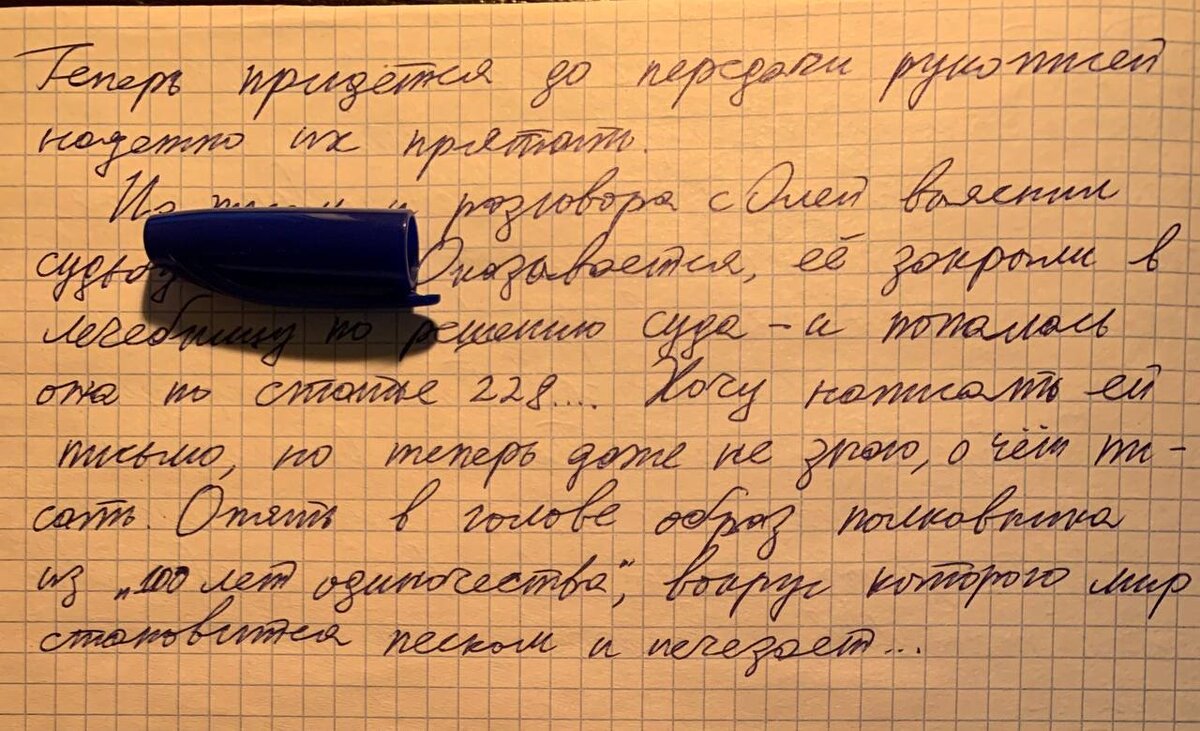 Теперь придётся до передачи рукописей
надежно их прятать.
Из и разговора с Олей выяснил
судьбу Оказывается, её закрыли в
лечебницу по решению суда – и попалась
она по статье 228.... Хочу написать ей
письмо, но теперь даже не знаю, о чём пи-
сать. Опять в голове образ полковника
из „100 лет одиночества", вокруг которого мир
становится песком и исчезает...